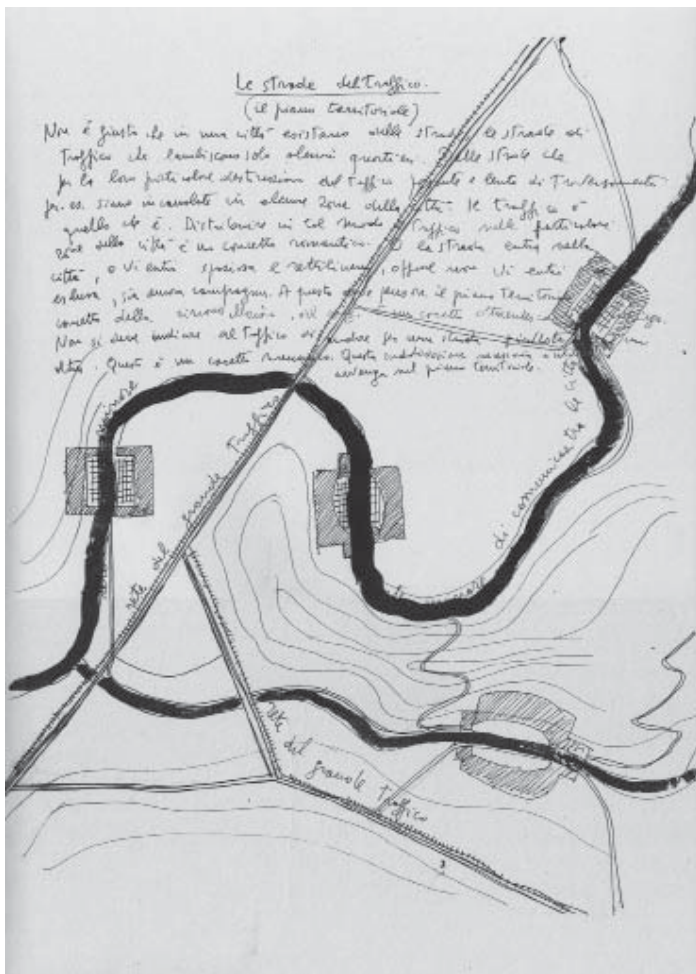 Le strade del traffico.
(il piano territoriale)
Non è giusto che in una città esistano delle strade, le strade di
traffico che lambiscono solo alcuni quartieri. Delle strade che
per la loro particolare destinazione del traffico pesante e lento di
p. es. siano incanalate in alcune zone della città. Il traffico è
quello che è. Distribuire in tal modo traffico nelle particolari
zone della città è un concetto romantico. O la strada entra nella
città, o vi entra spaziosa e rettilinea, oppure non vi entri
esclusa, sia ancora campagna. A questo deve pensare il piano territoriale
concetto della circonvallazione, un concetto
Non si deve indicare al traffico di andare per una strada piuttosto un
altra. Questo è un concetto Questa suddivisione
avvenga sul piano territoriale.
minore
rete del grande traffico
di comunicazione tra le città
minore
rete del grande traffico